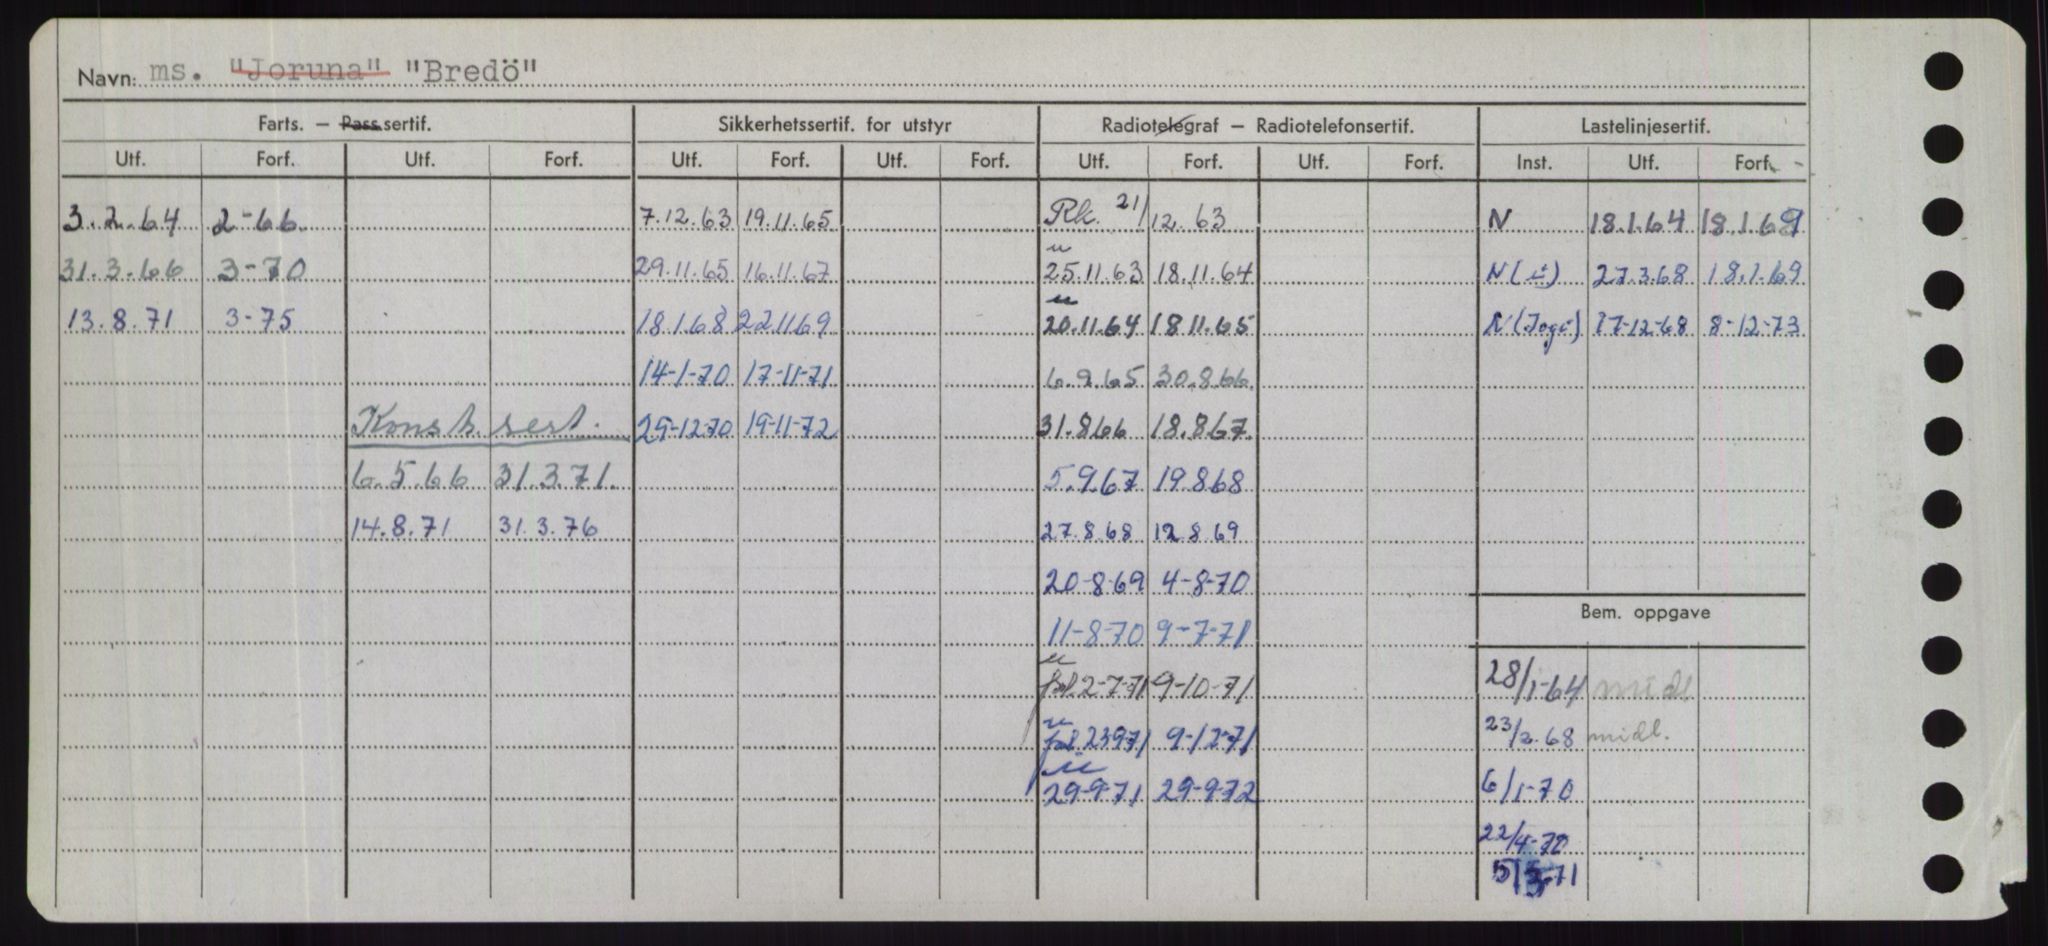 Navn: ms. "Joruna" "Bredö"
Farts. — Pass.sertif. Sikkerhetssertif. for utstyr Radiotelegraf — Radiotelefonsertif. Lastelinjesertif.
Utf. Forf. Utf. Forf. Utf. Forf. Utf. Forf. Utf. Forf. Utf. Forf. Inst. Utf. Forf.
3.2.64 2-66. 7.12.63 19.11.65 Rk. 21/12.63 N 18.1.64 18.1.69
31.3.66 3-70 29.11.65 16.11.67 25.11.63 18.11.64 N 27.3.68 18.1.69
13.8.71 3-75 18.1.68 22.11.69 20.11.64 18.11.65 N 17-12-68 8-12-73
14-1-70 17-11-71 6.9.65 30.8.66.
Konst. sert. 29-12-70 19-11-72 31.8.66 18.8.67.
6.5.66 31.3.71. 5.9.67 19.8.68
14.8.71 31.3.76 27.8.68 12.8.69
20-8-69 4-8-70
Bem. oppgave
11-8-70 9-7-71
2-7-71 9-10-71 28/1-64 midl
23971 9-12-71 23/2.68 midl.
29-9-71 29-9-72 6/1-70
22/4-70
5/3-71